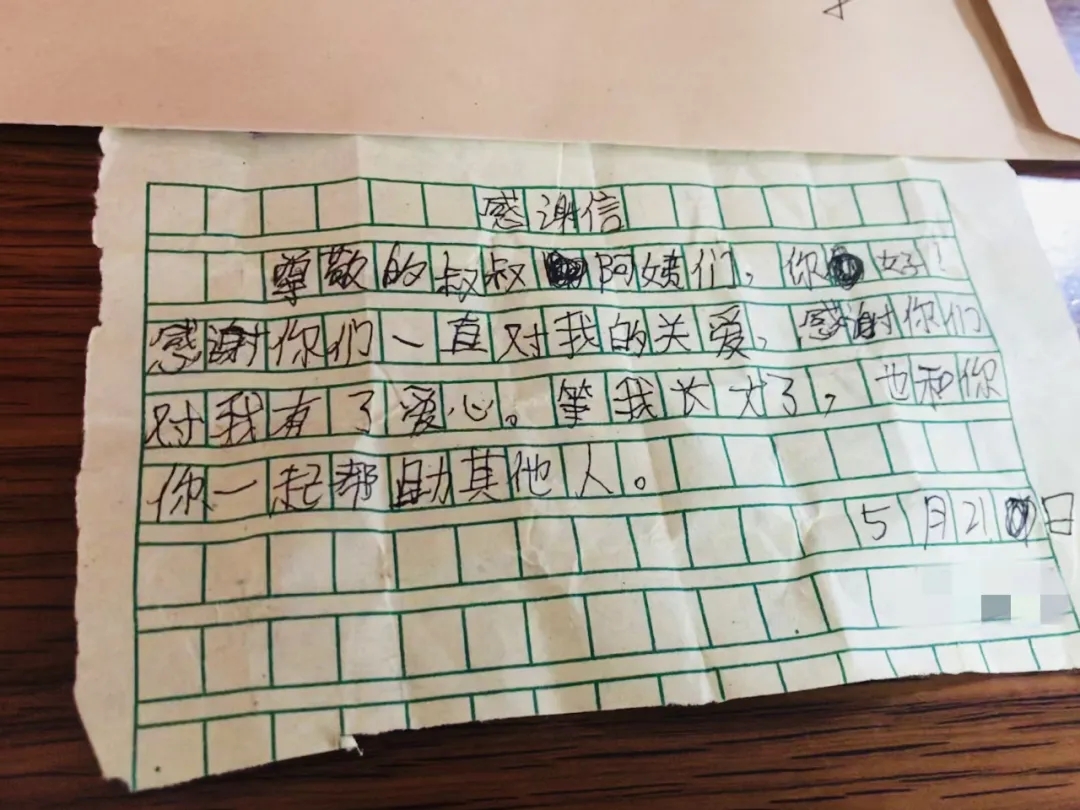 感谢信
尊敬的叔叔阿姨们，你好！
感谢你们一直对我的关爱，感谢你们
对我有了爱心。等我长大了，也和你
你一起帮助其他人。
5月21日